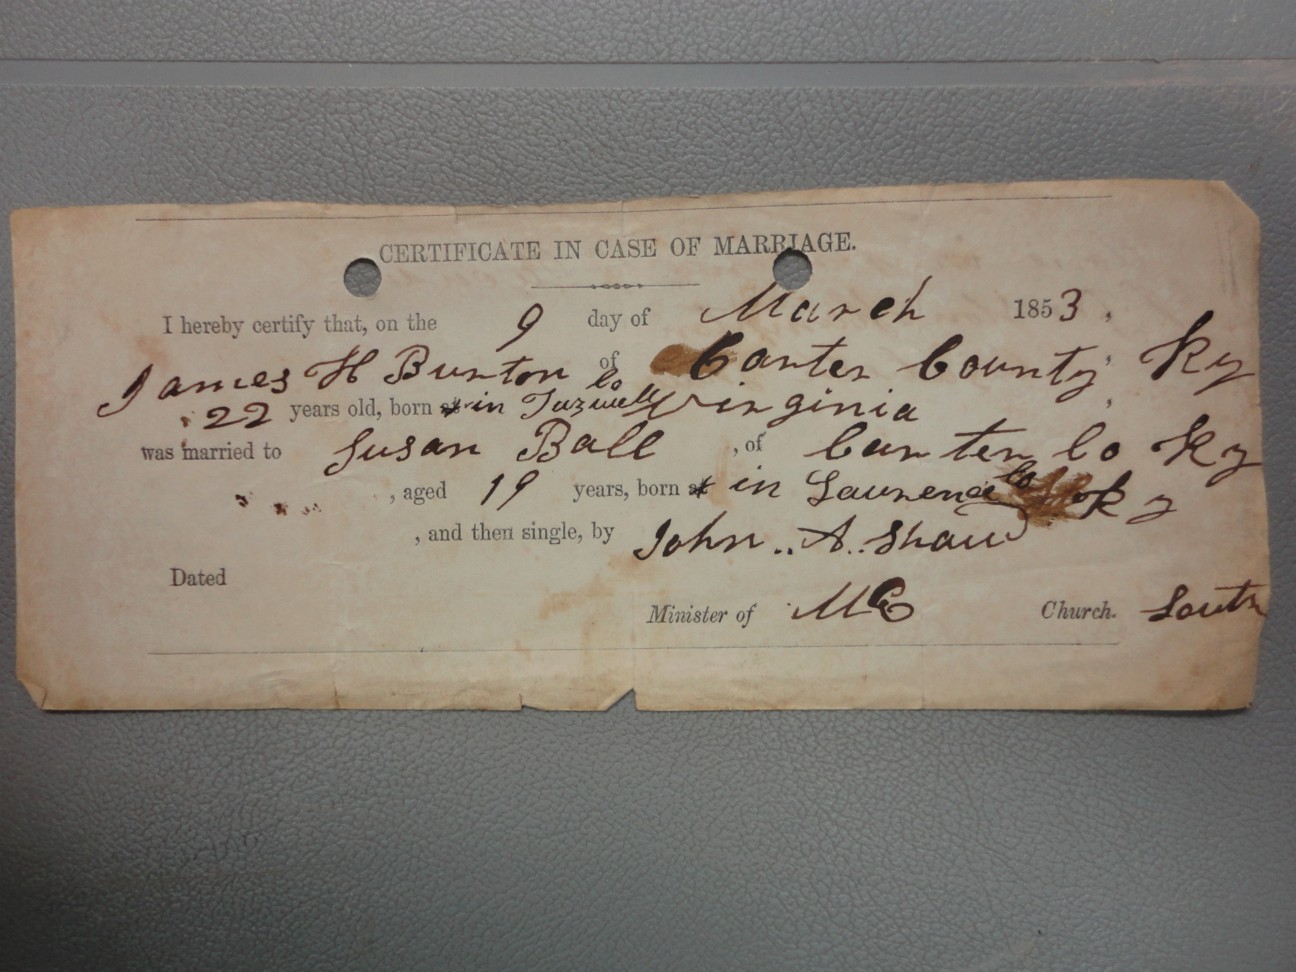 CERTIFICATE IN CASE OF MARRIAGE.
I hereby certify that, on the 9 day of March 1853,
James H Burton of Carter County, Ky
22 years old, born at in Tazwell Co Virginia,
was married to Susan Ball, of Carter Co Ky
, aged 19 years, born at in Lawrence Co Ky
, and then single, by John.. A.. Shaw
Dated
Minister of ME Church. South